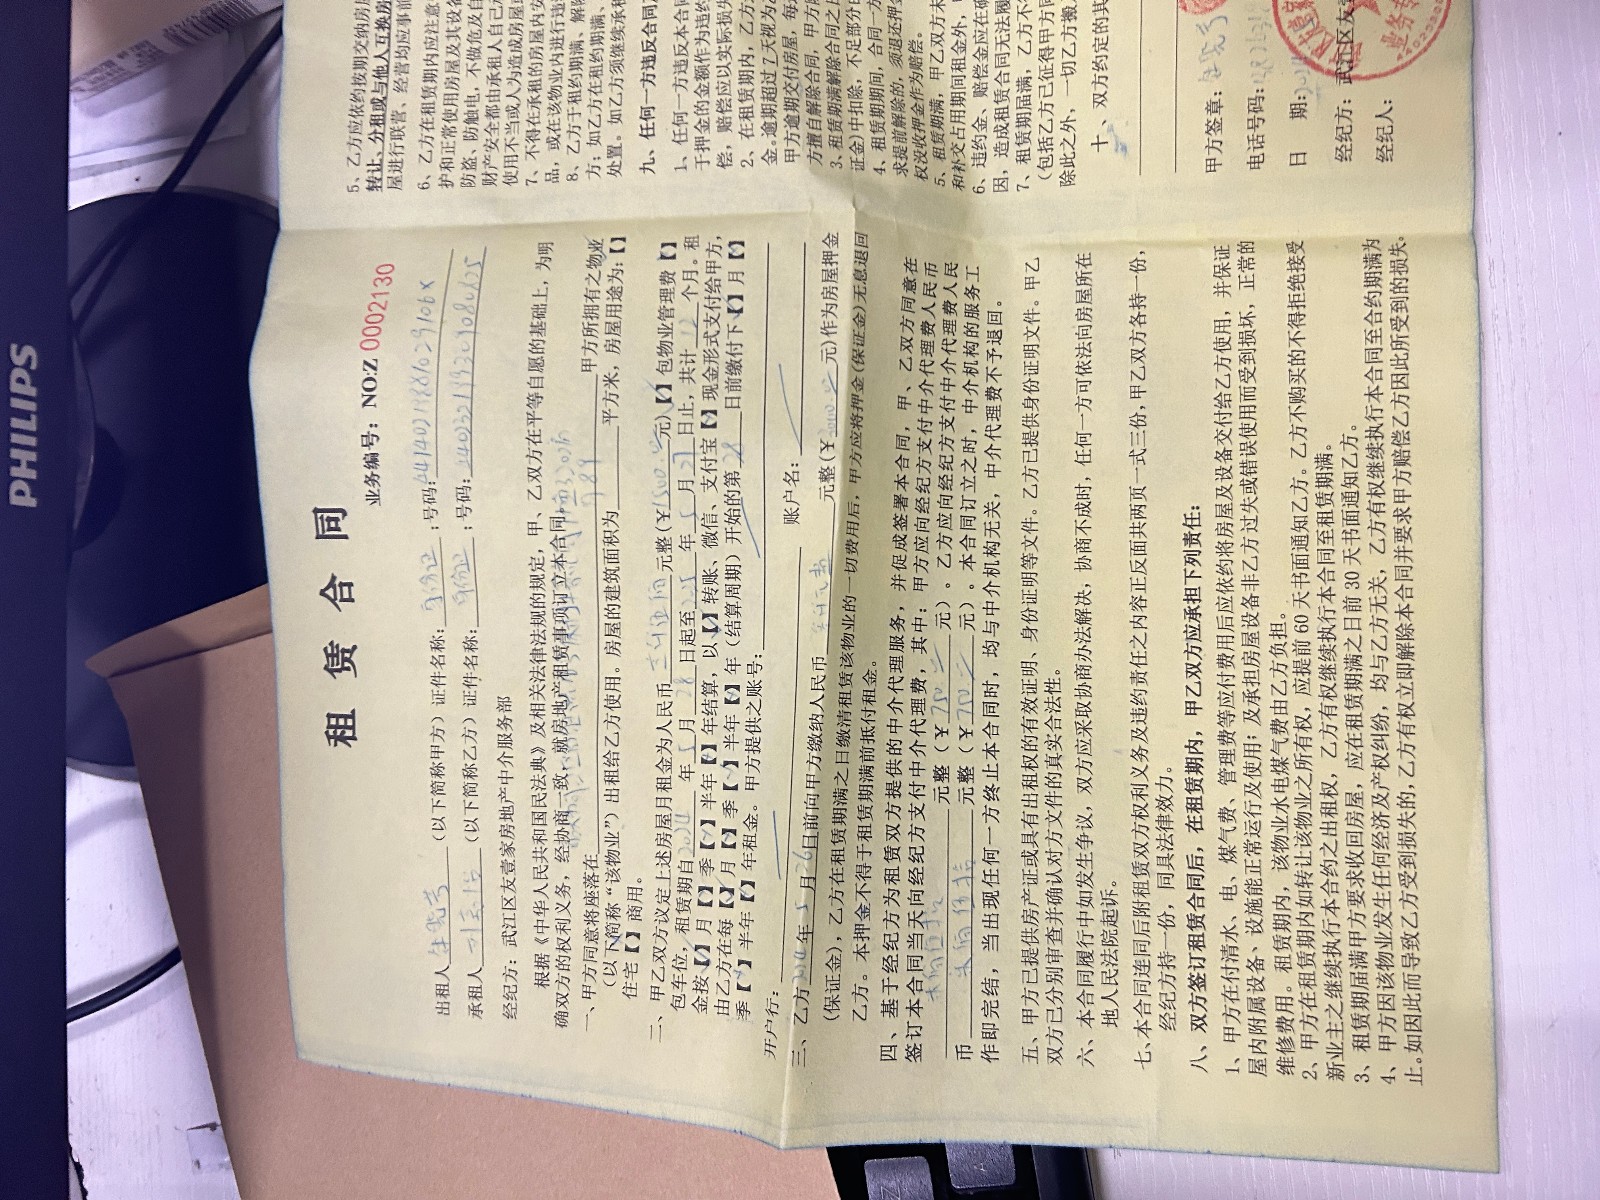 PHILIPS
租 赁 合 同
业务编号：NO:Z 0002130
出租人（以下简称甲方）证件名称：身份证；号码：
承租人（以下简称乙方）证件名称：身份证；号码：
经纪方：武江区友壹家房地产中介服务部
根据《中华人民共和国民法典》及相关法律法规的规定，甲、乙双方在平等自愿的基础上，为明
确双方的权利义务，经协商一致，就房地产租赁事项订立本合同。
一、甲方同意将座落在 甲方所拥有之物业
（以下简称“该物业”）出租给乙方使用。房屋的建筑面积为 平方米，房屋用途为：【】
住宅【】商用。
二、甲乙双方议定上述房屋月租金为人民币 元整（¥1500元）【】包物业管理费【】
包车位，租赁期自2024年5月28日起至2025年5月27日止，共计12个月。租
金按【✓】月【】季【】半年【】年结算，以【✓】转账、微信、支付宝【】现金形式支付给甲方，
由乙方在每【✓】月【】季【】半年【】年（结算周期）开始的第28日前缴付下【】月【】
季【】半年【】年租金。甲方提供之账号：
开户行： 账户名：
三、乙方2024年5月26日前向甲方缴纳人民币 元整（¥3000元）作为房屋押金
（保证金），乙方在租赁期满之日缴清租赁该物业的一切费用后，甲方应将押金（保证金）无息退回
乙方。本押金不得于租赁期满前抵付租金。
四、基于经纪方为租赁双方提供的中介代理服务，并促成签署本合同，甲、乙双方同意在
签订本合同当天向经纪方支付中介代理费，其中：甲方应向经纪方支付中介代理费人民币
元整（¥700元）。乙方应向经纪方支付中介代理费人民
币 元整（¥700元）。本合同订立之时，中介机构的服务工
作即完结，当出现任何一方终止本合同时，均与中介机构无关，中介代理费不予退回。
五、甲方已提供房产证或具有出租权的有效证明、身份证明等文件。乙方已提供身份证明文件。甲乙
双方已分别审查并确认对方文件的真实合法性。
六、本合同履行中如发生争议，双方应采取协商办法解决，协商不成时，任何一方可依法向房屋所在
地人民法院起诉。
七、本合同连同后附租赁双方权利义务及违约责任之内容正反面共两页一式三份，甲乙双方各持一份，
经纪方持一份，同具法律效力。
八、双方签订租赁合同后，在租赁期内，甲乙双方应承担下列责任：
1、甲方在付清水、电、煤气费、管理费等应付费用后应依约将房屋及设备交付给乙方使用，并保证
屋内附属设备、设施能正常运行及使用；及承担房屋设备非乙方过失或错误使用而受到损坏，正常的
维修费用。租赁期内，该物业水电煤气费由乙方负担。
2、甲方在租赁期内如转让该物业之所有权，应提前60天书面通知乙方。乙方不购买的不得拒绝接受
新业主之继续执行本合约之出租权，乙方有权继续执行本合同至租赁期满。
3、租赁期届满甲方要求收回房屋，应在租赁期满之日前30天书面通知乙方。
4、甲方因该物业发生任何经济及产权纠纷，均与乙方无关，乙方有权继续执行本合同至合约期满为
止。如因此而导致乙方受到损失的，乙方有权立即解除本合同并要求甲方赔偿乙方因此所受到的损失。
5、乙方应依约按期交纳房屋
转让、分租或与他人互换房
屋进行联营、经营均应事前
6、乙方在租赁期内应注意
护和正常使用房屋及其设备
防盗，防触电，不做危及自
财产安全都由承租人自己
使用不当或人为造成房屋
7、不得在承租的房屋内安
品，或在该物业内进行违
8、乙方于租约期满、解除
方；如乙方在租约期满、
处置。如乙方须继续承租
九、任何一方违反合同
1、任何一方违反本合同
于押金的金额作为违约
偿，赔偿应以实际损失
2、在租赁期内，乙方
金。逾期超过7天视为
甲方逾期交付房屋，每
方擅自解除合同，甲方
3、租赁期满解除合同之日
证金中扣除，不足部分
4、租赁期期间，合同一方
求提前解除的，须退还押
权没收押金作为赔偿。
5、租赁期满，甲乙双方未
和补交占用期间租金外，
6、违约金、赔偿金应在确
因，造成租赁合同无法履
7、租赁期届满，乙方不
（包括乙方已征得甲方同
除此之外，一切乙方搬入
十、双方约定的其
甲方签章：
电话号码：
日 期：
经纪方：武江区友壹
经纪人：
业务专